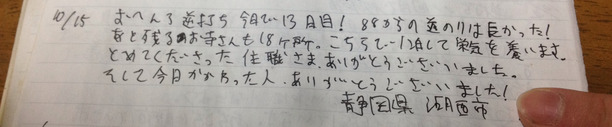 10/15 おへんろ逆打ち今日で13日目! 88からの道のりは長かった!
あと残るお寺さんも18ヶ所。こちらで一泊して英気を養います。
とめてくださった住職さま、ありがとうございました。
そして今日かかわった人、ありがとうございました!
静岡県 湖西市